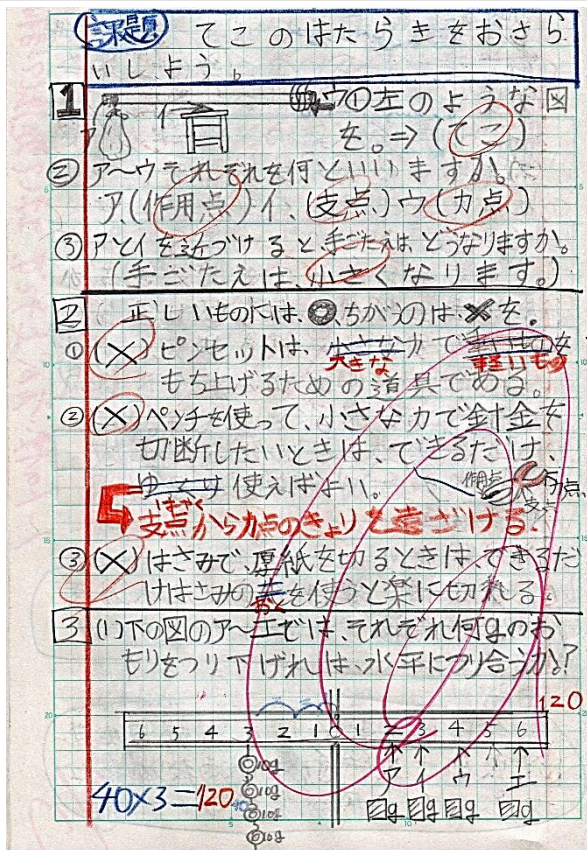 課題 てこのはたらきをおさら
いしよう。
1 ア イ ウ ①左のような図
を。⇒(てこ)
② ア〜ウそれぞれを何といいますか。
ア.(作用点)イ、(支点)ウ(力点)
③ アとイを近づけると手ごたえは、どうなりますか。
(手ごたえは、小さくなります。)
2 正しいものには、◎、ちがうのは、✕を。
① (✕)ピンセットは、小さな力で重いものを
大きな 軽いもの
もち上げるための道具である。
② (✕)ペンチを使って、小さな力で針金を
切断したいときは、できるだけ、
作用点 力点
ゆっくり使えばよい。 支点
支点から力点のきょりを遠ざける。
③ (✕)はさみで、厚紙を切るときは、できるだ
けはさみの先を使うと楽に切れる。
おく
3 (1)下の図のア〜エでは、それぞれ何gのお
もりをつり下げれは、水平につり合うか?
120
6 5 4 3 2 1 0 1 2 3 4 5 6
10g ア イ ウ エ
40×3=120 10g g g g g
10g